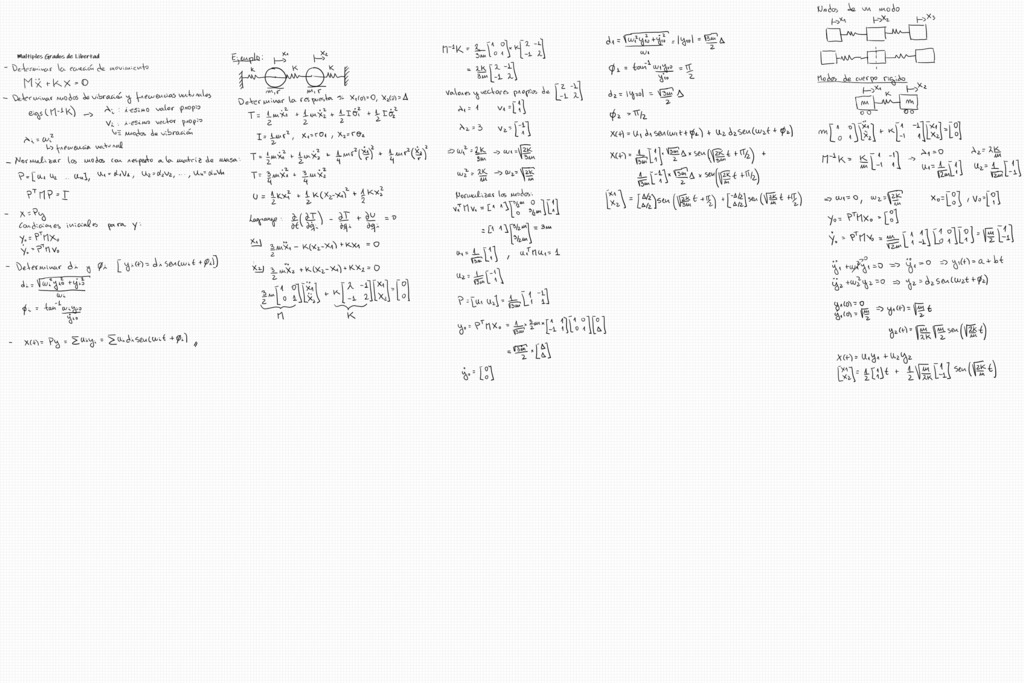 Múltiples Grados de Libertad
- Determinar la ecuación de movimiento
Mẍ + Kx = 0
- Determinar modos de vibración y frecuencias naturales
eigs(M⁻¹K) → λᵢ : i-esimo valor propio
vᵢ : i-esimo vector propio
↳ modos de vibración
λᵢ = ωᵢ²
↳ frecuencia natural
- Normalizar los modos con respecto a la matriz de masa:
P = [u₁ u₂ ... uₙ], u₁ = α₁v₁, u₂ = α₂v₂, ..., uₙ = αₙvₙ
PᵀMP = I
- x = Py
condiciones iniciales para y:
y₀ = PᵀMx₀
ẏ₀ = PᵀMv₀
- Determinar dᵢ y φᵢ [yᵢ(t) = dᵢ sen(ωᵢt + φᵢ)]
dᵢ = √(ωᵢ²yᵢ₀² + ẏᵢ₀²) / ωᵢ
φᵢ = tan⁻¹ ωᵢyᵢ₀ / ẏᵢ₀
- x(t) = Py = Σuᵢyᵢ = Σuᵢdᵢ sen(ωᵢt + φᵢ)
Ejemplo:
x₁ x₂
K K K
m, r m, r
Determinar la respuesta si x₁(0)=0, x₂(0)=Δ
T = 1/2 mẋ₁² + 1/2 mẋ₂² + 1/2 Iθ̇₁² + 1/2 Iθ̇₂²
I = 1/2 mr², x₁ = rθ₁, x₂ = rθ₂
T = 1/2 mẋ₁² + 1/2 mẋ₂² + 1/4 mr²(ẋ₁/r)² + 1/4 mr²(ẋ₂/r)²
T = 3/4 mẋ₁² + 3/4 mẋ₂²
U = 1/2 Kx₁² + 1/2 K(x₂-x₁)² + 1/2 Kx₂²
Lagrange: ∂/∂t (∂T/∂q̇ᵢ) - ∂T/∂qᵢ + ∂U/∂qᵢ = 0
x₁] 3/2 mẍ₁ - K(x₂-x₁) + Kx₁ = 0
x₂] 3/2 mẍ₂ + K(x₂-x₁) + Kx₂ = 0
3/2 m [1 0; 0 1][ẍ₁; ẍ₂] + K [2 -1; -1 2][x₁; x₂] = [0; 0]
M K
M⁻¹K = 2/3m [1 0; 0 1] · K [2 -1; -1 2]
= 2K/3m [2 -1; -1 2]
valores y vectores propios de [2 -1; -1 2]
λ₁ = 1 v₁ = [1; 1]
λ₂ = 3 v₂ = [-1; 1]
⇒ ω₁² = 2K/3m → ω₁ = √(2K/3m)
ω₂² = 2K/m → ω₂ = √(2K/m)
Normalizar los modos:
v₁ᵀMv₁ = [1 1][3/2m 0; 0 3/2m][1; 1]
= [1 1][3/2m; 3/2m] = 3m
u₁ = 1/√3m [1; 1], u₁ᵀMu₁ = 1
u₂ = 1/√3m [-1; 1]
P = [u₁ u₂] = 1/√3m [1 -1; 1 1]
y₀ = PᵀMx₀ = 1/√3m · 3/2 m · [1 1; -1 1][1 0; 0 1][0; Δ]
= √3m/2 · [Δ; Δ]
ẏ₀ = [0; 0]
d₁ = √(ω₁²y₁₀² + ẏ₁₀²) / ω₁ = |y₁₀| = √3m/2 Δ
φ₁ = tan⁻¹ ω₁y₁₀ / ẏ₁₀ = π/2
d₂ = |y₂₀| = √3m/2 Δ
φ₂ = π/2
x(t) = u₁d₁sen(ω₁t + φ₁) + u₂d₂sen(ω₂t + φ₂)
x(t) = 1/√3m [1; 1] · √3m/2 Δ · sen(√(2K/3m) t + π/2) +
1/√3m [-1; 1] · √3m/2 Δ · sen(√(2K/m) t + π/2)
[x₁; x₂] = [Δ/2; Δ/2] sen(√(2K/3m) t + π/2) + [-Δ/2; Δ/2] sen(√(2K/m) t + π/2)
Nodos de un modo
x₁ x₂ x₃
Modos de cuerpo rígido
x₁ x₂
m K m
m [1 0; 0 1][ẍ₁; ẍ₂] + K [1 -1; -1 1][x₁; x₂] = [0; 0]
M⁻¹K = K/m [1 -1; -1 1] → λ₁ = 0 λ₂ = 2K/m
u₁ = 1/√2m [1; 1] u₂ = 1/√2m [1; -1]
⇒ ω₁ = 0, ω₂ = √(2K/m) x₀ = [0; 0], v₀ = [0; 1]
y₀ = PᵀMx₀ = [0; 0]
ÿ₁ + ω₁²y₁ = 0 ⇒ ÿ₁ = 0 ⇒ y₁(t) = a + bt
ÿ₂ + ω₂²y₂ = 0 ⇒ y₂ = d₂sen(ω₂t + φ₂)
x(t) = u₁y₁ + u₂y₂